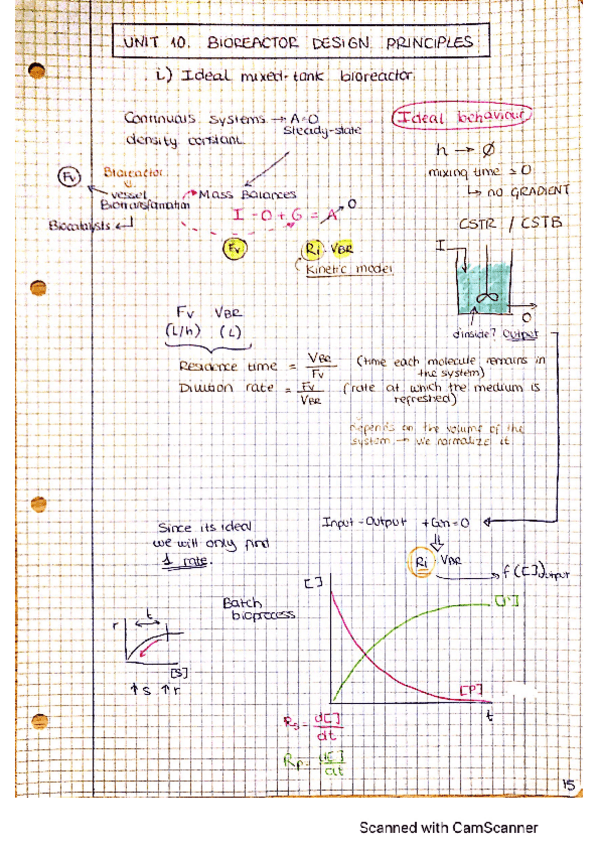 UNIT 10. BIOREACTOR DESIGN PRINCIPLES
i) Ideal mixed-tank bioreactor
Continuous systems → A=0
Steady-state
density constant
Ideal behaviour
h → Ø
mixing time = 0
↳ no GRADIENT
Fv
Bioreactor
vessel
Biotransformation
Biocatalysts
Mass Balances
I - O + G = A 0
Fv
Ri · VBR
Kinetic model
CSTR / CSTB
I
O
inside? Output
Fv VBR
(L/h) (L)
Residence time = VBR / Fv (time each molecule remains in
the system)
Dilution rate = Fv / VBR (rate at which the medium is
refreshed)
depends on the volume of the
system → we normalize it
Since its ideal
we will only find
1 rate.
Input - Output + Gen = 0
Ri · VBR
→ f([])output
Batch
bioprocess
[ ]
[P]
t
r
t
[S]
↑s ↑r
Rs = d[ ] / dt
Rp = d[ ] / dt
15
Scanned with CamScanner